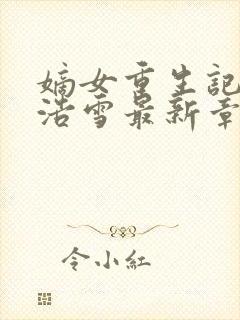 嫡女重生記
浩雪最新章
令小紅